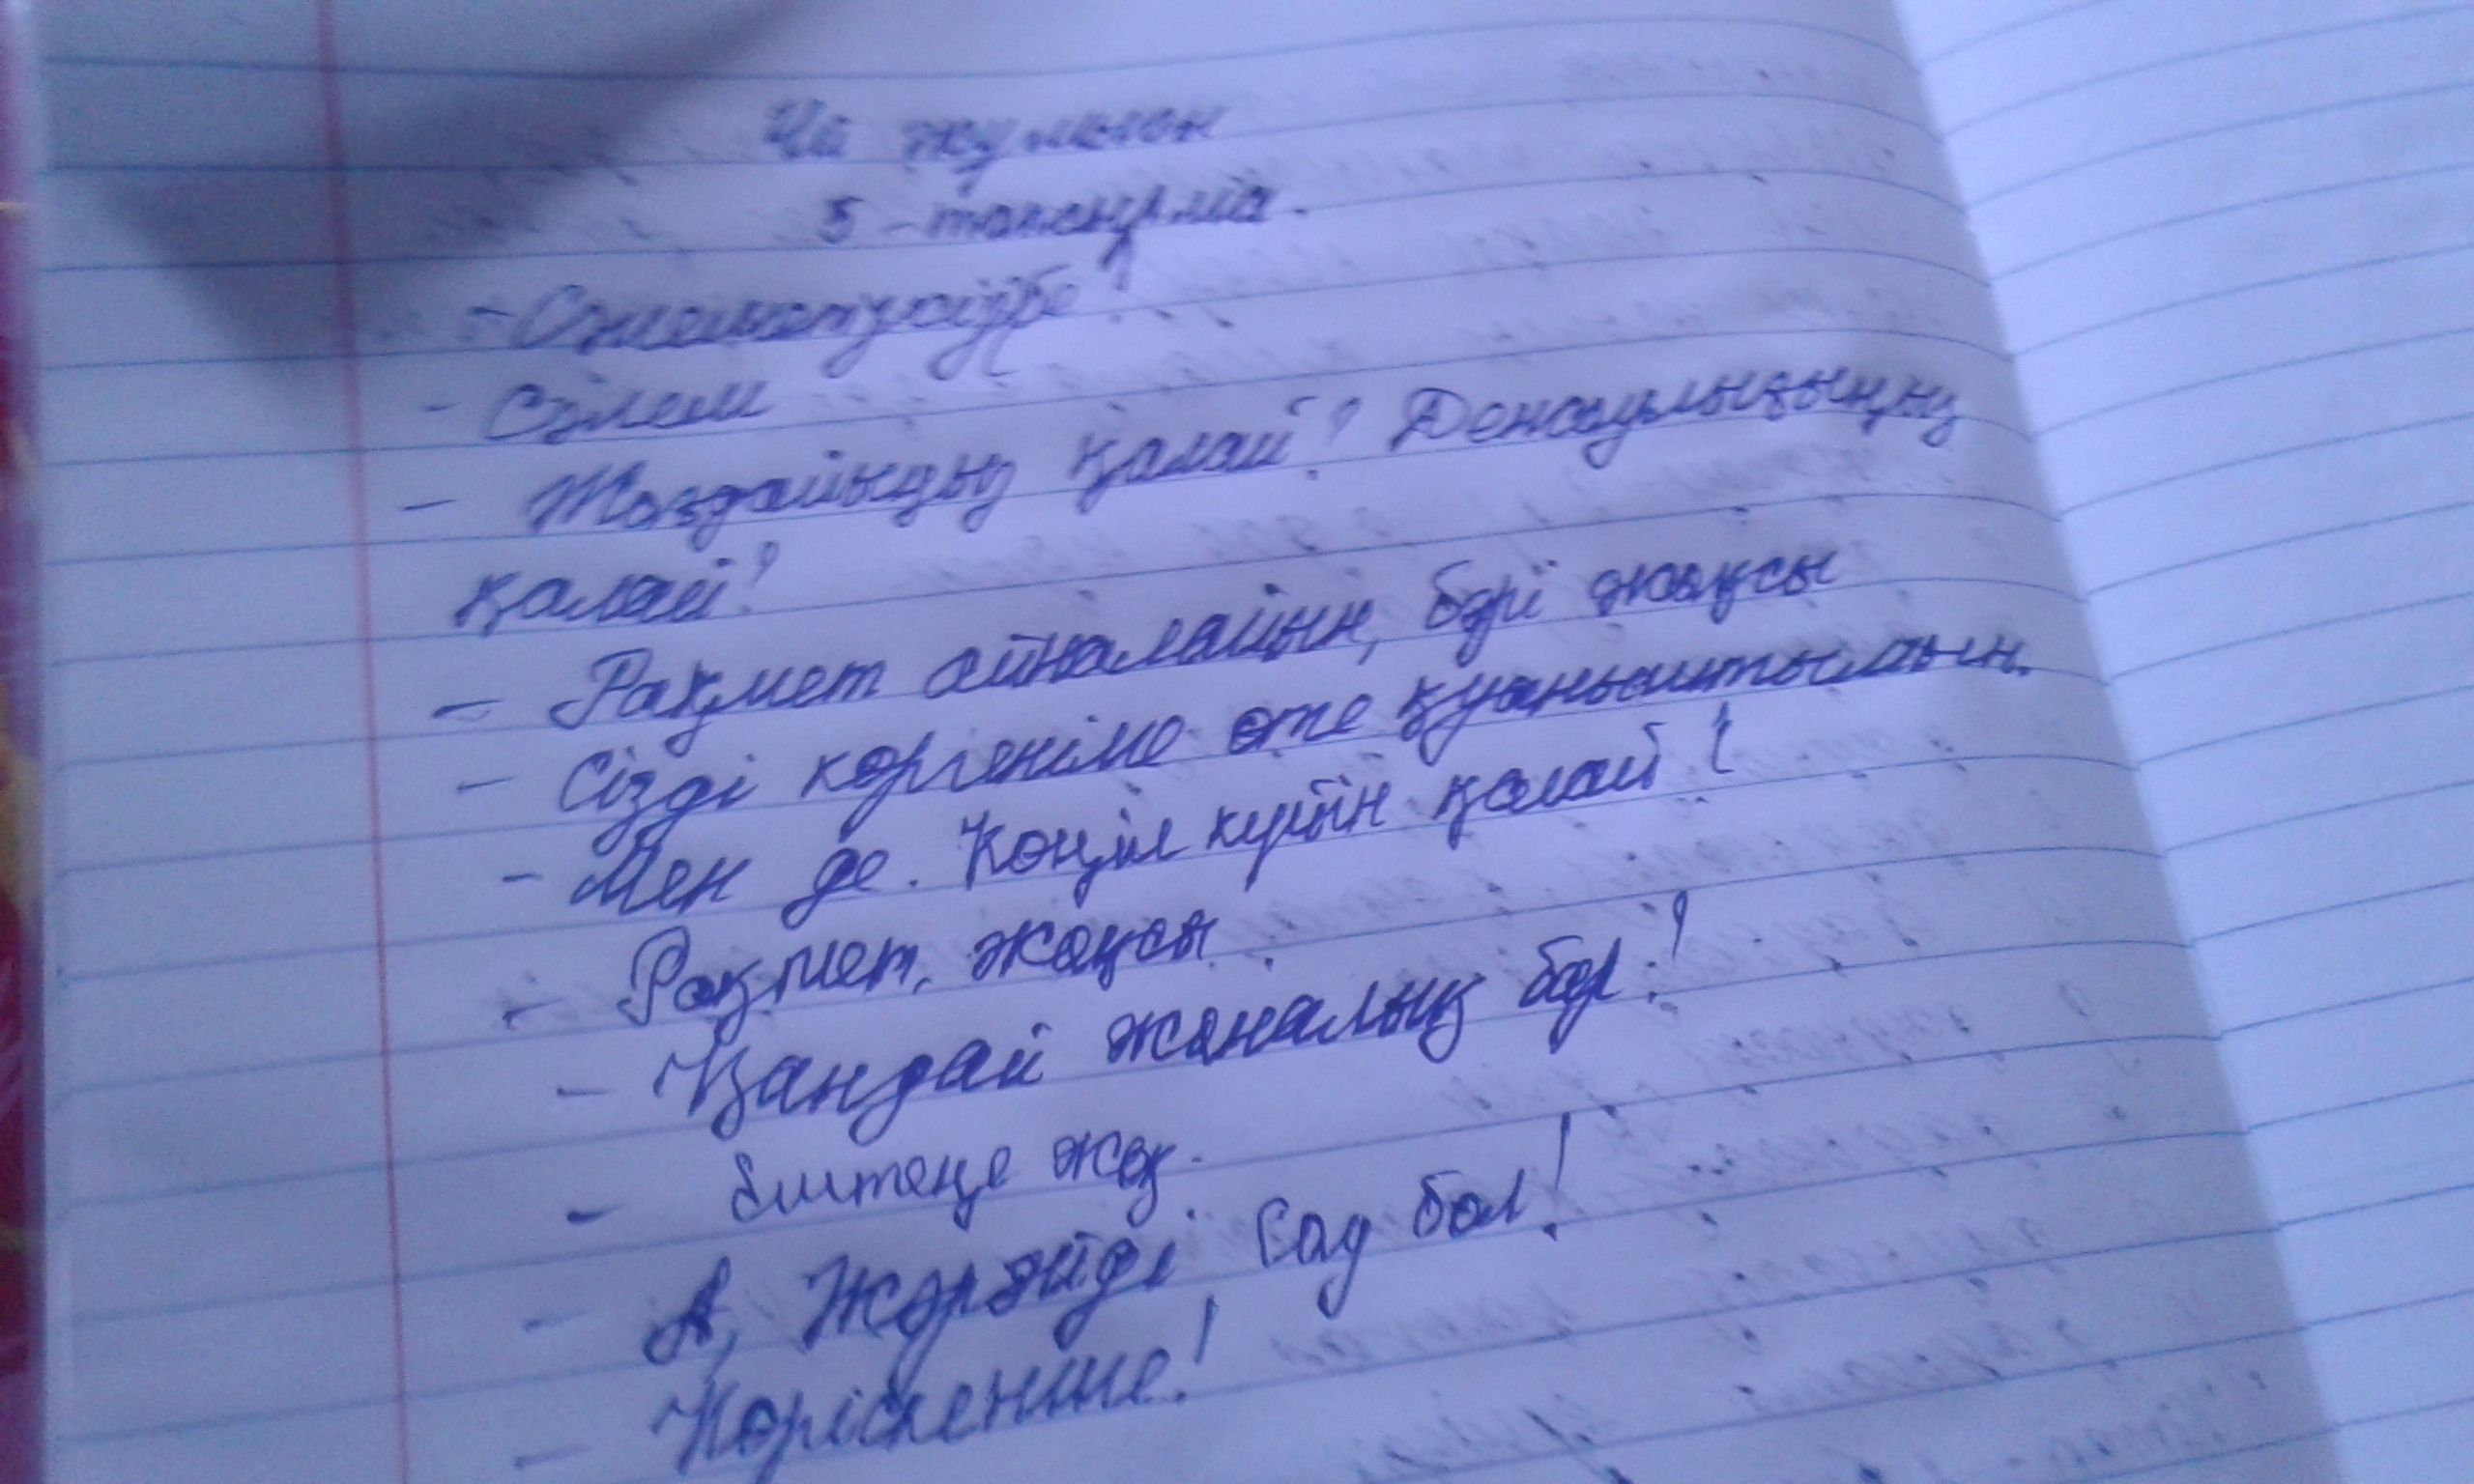 Үй жұмысы
5 - тапсырма.
- Сәлеметсізбе!
- Сәлем
- Жағдайыңыз қалай? Денсаулығыңыз
қалай?
- Рақмет айналайын, бәрі жақсы
- Сізді көргеніме өте қуаныштымын.
- Мен де. Көңіл күйін қалай?
- Рақмет, жақсы
- Қандай жаналық бар?
- Ештеңе жоқ.
- А, Жарайді Сау бол!
- Көріскенше!